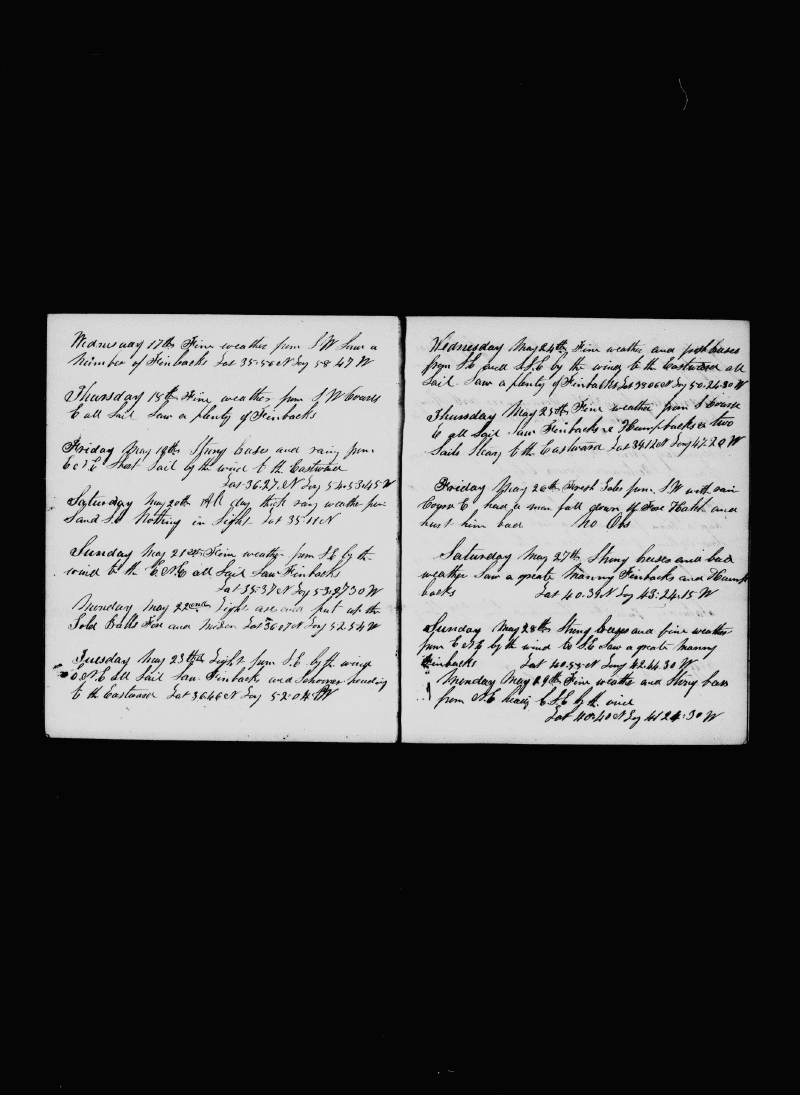 Wednesday 17th Fine weather from S W Saw a
Number of Finbacks Lat 35-56 N Long 58 47 W
Thursday 18th Fine weather from S W Course
E all Sail Saw a plenty of Finbacks
Friday May 19th Strong breses and rainy from
E Short Sail by the wind to the Eastward
Lat 36-27 N Long 54-53-45 W
Saturday May 20th All day thick rainy weather from
S and S.E Nothing in Sight Lat 35-11 N
Sunday May 21st Fine weather from S.E by the
wind to the E.N.E all Sail Saw Finbacks
Lat 35-37 N Long 53-27 30 W
Monday May 22nd Light and put up the
Lat 36 07 N Long 52-54 W
Tuesday May 23th Light from S.E by the wind
E all Sail Saw Finback and Schooner heading
to the Eastward Lat 36 46 N Long 52-04 W
Wednesday May 24th Fine weather and breses
from S.E and S.S.E by the wind to the Eastward all
Sail Saw a plenty of Finbacks Lat 38 06 N Long 50-24-30 W
Thursday May 25th Fine weather from S Course
E all Sail Saw Finbacks & Humpbacks & two
Sails Stearg to the Eastward Lat 39 12 N Long 47-20 W
Friday May 26th Fresh Gales from S.W with rain
Corse E had a man fall down of Fore Hatch and
hurt him bad No Obs
Saturday May 27th Strong breses and bad
weather Saw a greate Manny Finbacks and Hump
backs Lat 40-39 N Long 43-24-15 W
Sunday May 28th Strong breses and fine weather
from E.N.E by the wind to S.E Saw a greate Manny
Finbacks Lat 40-55 N Long 42 44 30 W
Monday May 29th Fine weather and Strong bress
from N.E heading E.S.E by the wind
Lat 40-40 N Long 41 24-30 W